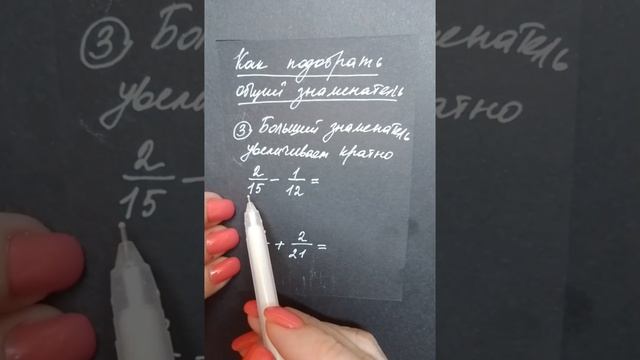 Как подобрать
общий знаменатель
③ Больший знаменатель
увеличиваем кратно
2/15 - 1/12 =
+ 2/21 =